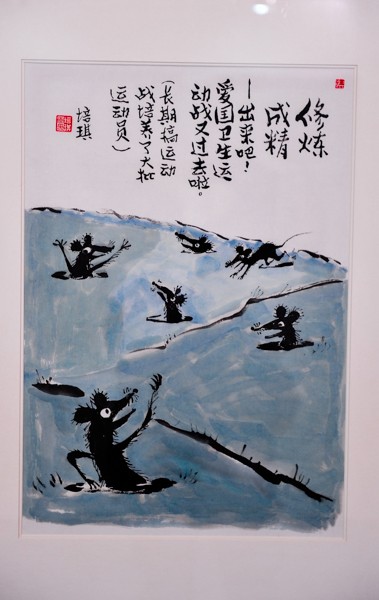 修炼
成精
—出来吧！
爱国卫生运
动战又过去啦。
（长期搞运动
战培养了大批
运动员）
培琪